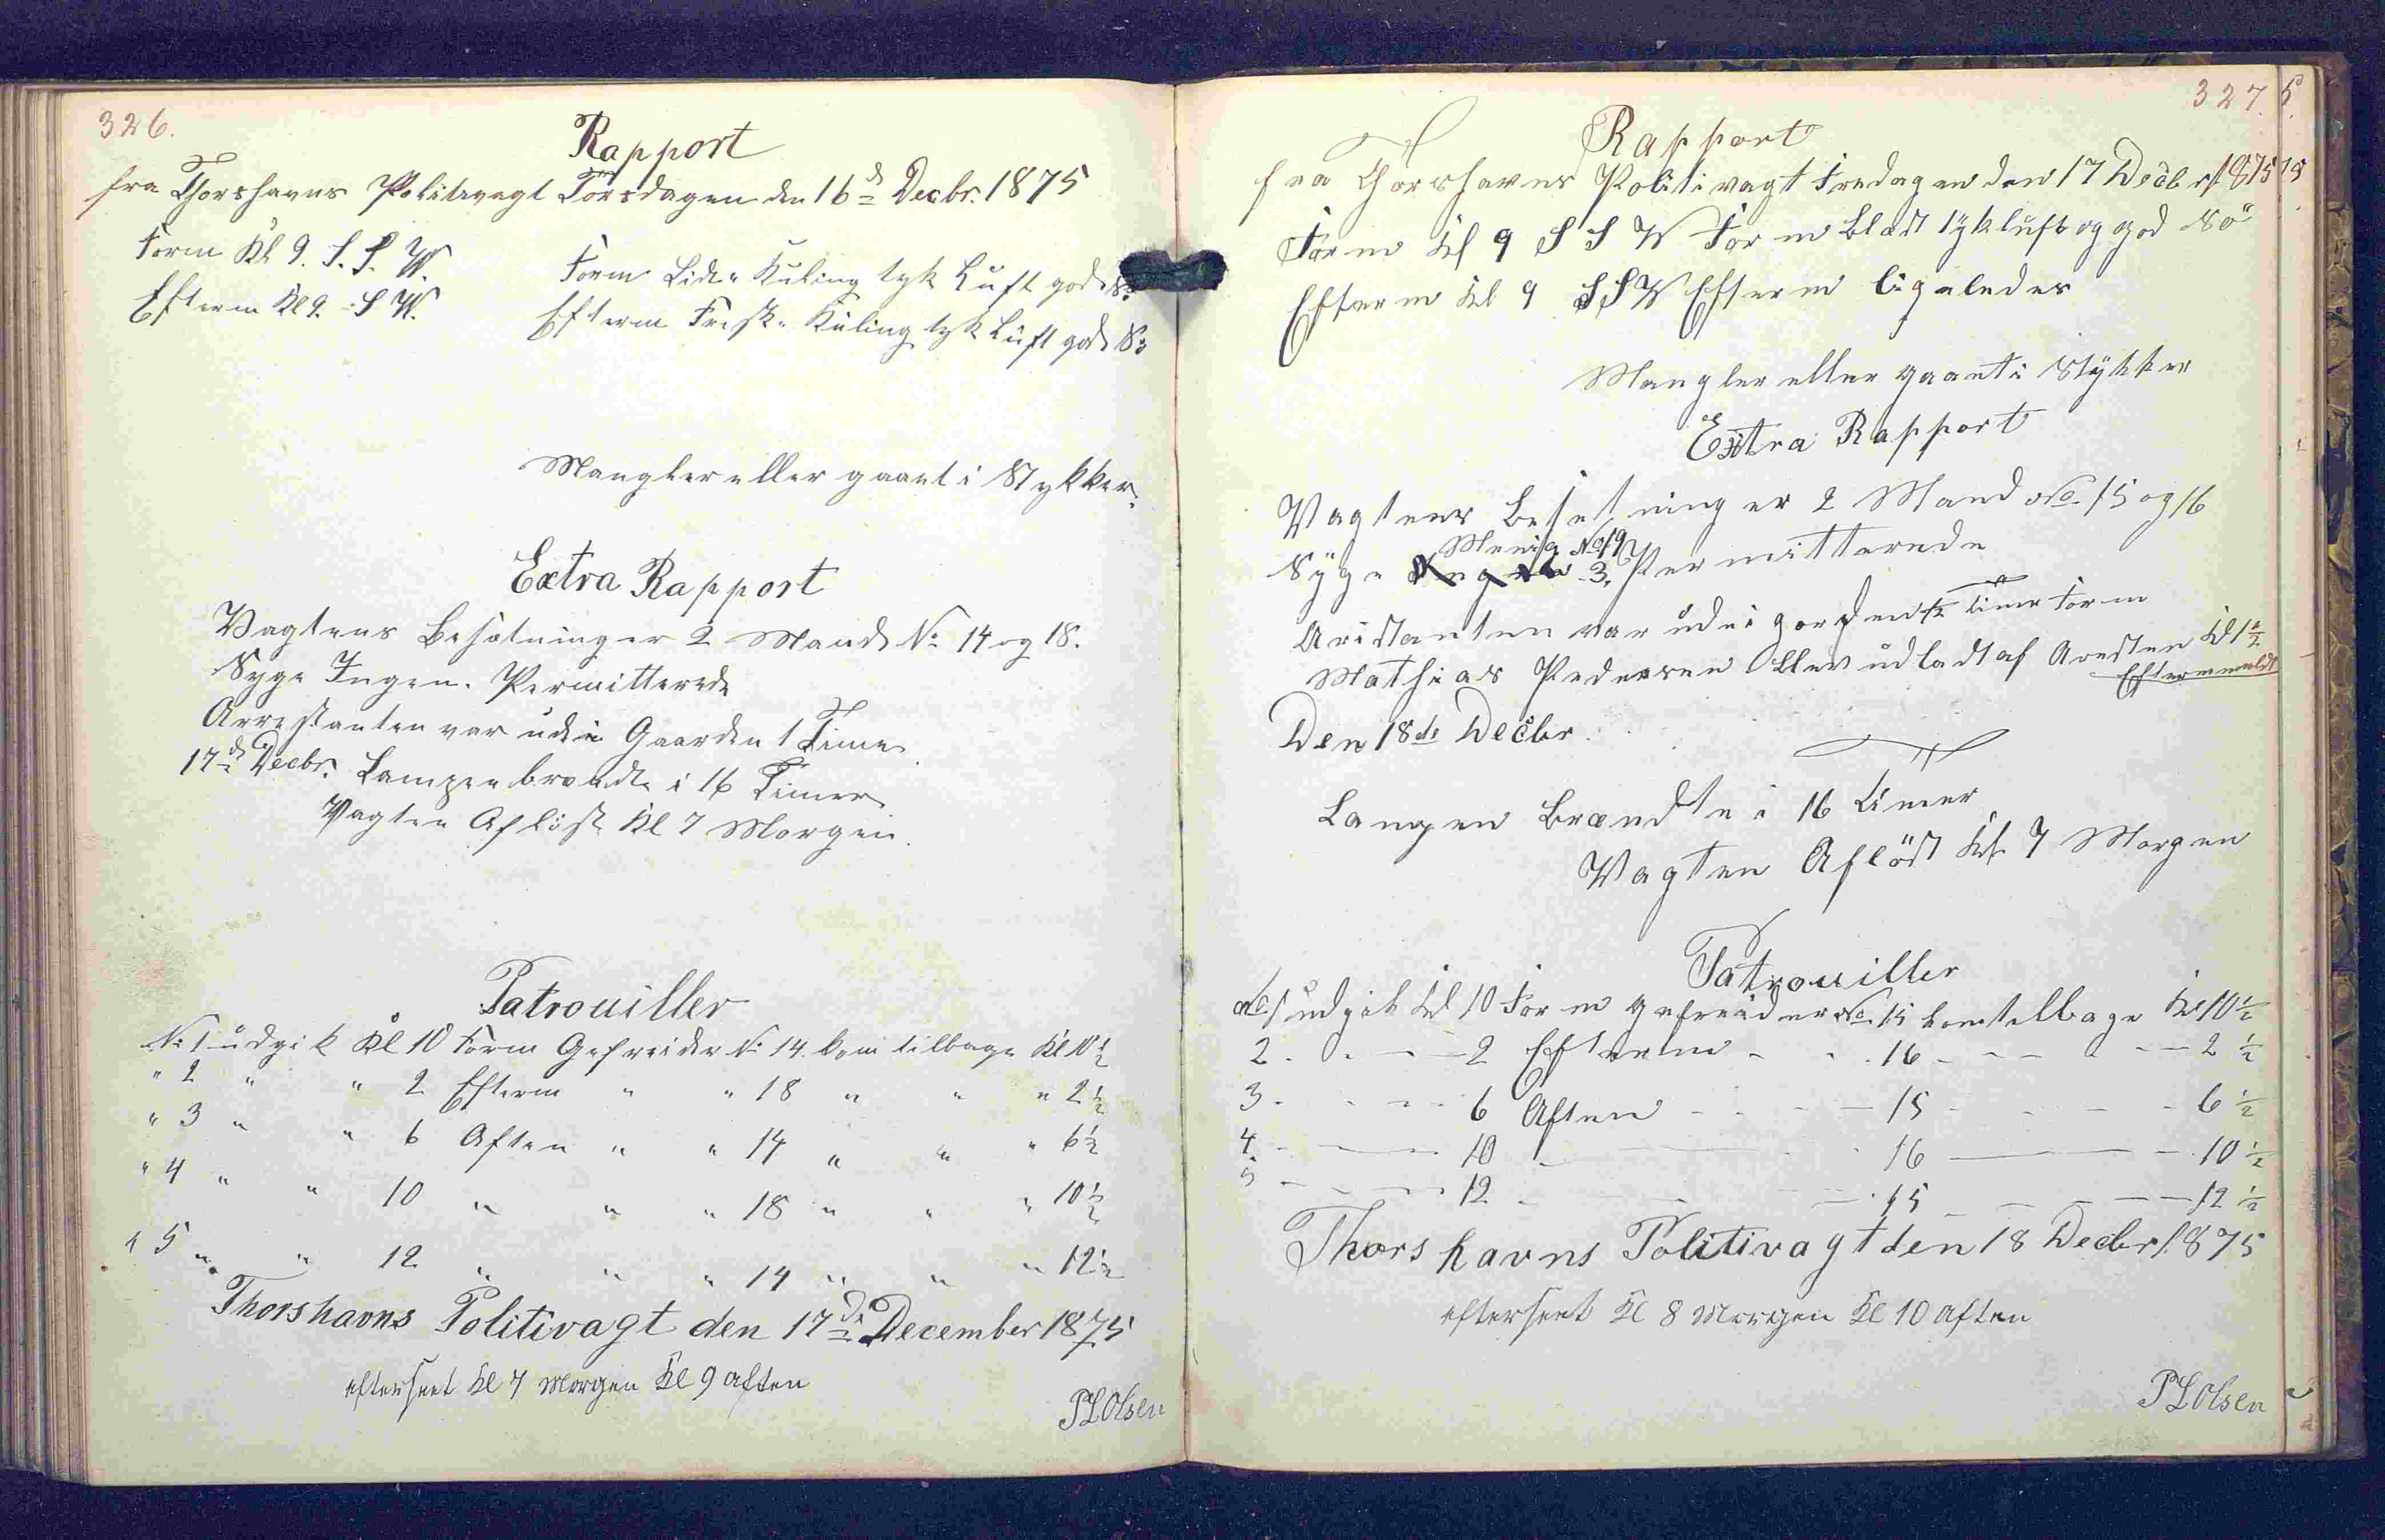 326.
Rapport
fra Thorshavns Politivagt Torsdagen den 16d Decbr. 1875
Form Kl 9. S. S. W.
Form Lidn Kuling tyk Luft god Sø
Efterm Kl 9. S W.
Efterm Frisk Kuling tyk Luft god Sø
Mangler eller gaaet i Stykker.
Extra Rapport
Vagtens Besætning er 2 Mand No 14 og 18.
Syge Ingen. Permitterede
Arrestanten var ude i Gaarden 1 Time
17d Decbr. Lampen brændte i 16 Timer
Vagten Afløst Kl 7 Morgen.
Patrouiller
No 1 udgik Kl 10 Form Gefreider No 14 kom tilbage Kl 10 1/2
" 2 " " 2 Efterm " " 18 " " " 2 1/2
" 3 " " 6 Aften " " 14 " " " 6 1/2
" 4 " " 10 " " " 18 " " " 10 1/2
" 5 " " 12 " " " 14 " " " 12 1/2
Thorshavns Politivagt den 17de December 1875
efterseet Kl 7 Morgen Kl 9 Aften
PLOlsen
327.
Rapport
fra Thorshavns Politivagt Fredagen den 17 Decbr 1875
Form Kl 9 S S W Form Blæst tyk luft og god Sö
Efterm Kl 9 SSW Efterm ligeledes
Mangler eller gaaet i Stykker
Extra Rapport
Vagtens Besetning er 2 Mand No. 15 og 16
Menig No 19
Syge Ingen 3. Permitterede
Aristanten var ude i gorden 1/2 time Form
Mathias Pedersen blev udladt af Aresten Kl 1 1/2
Eftermeldt
Den 18de Decbr
Lampen Brændte i 16 timer
Vagten Aflöst Kl. 7 Morgen
Patrouiller
No. 1 udgik Kl 10 Form gefreider No. 15 kom telbage Kl 10 1/2
2 - - - 2 Efterm - - 16 - - - - 2 1/2
3 - - - 6 Aften - - - 15 - - - - 6 1/2
4. - - - 10 - - - 16 - - - 10 1/2
5 - - - 12 - - - 15 - - - 12 1/2
Thorshavns Politivagt den 18 Decbr 1875
efterseet Kl 8 Morgen Kl 10 Aften
PLOlsen